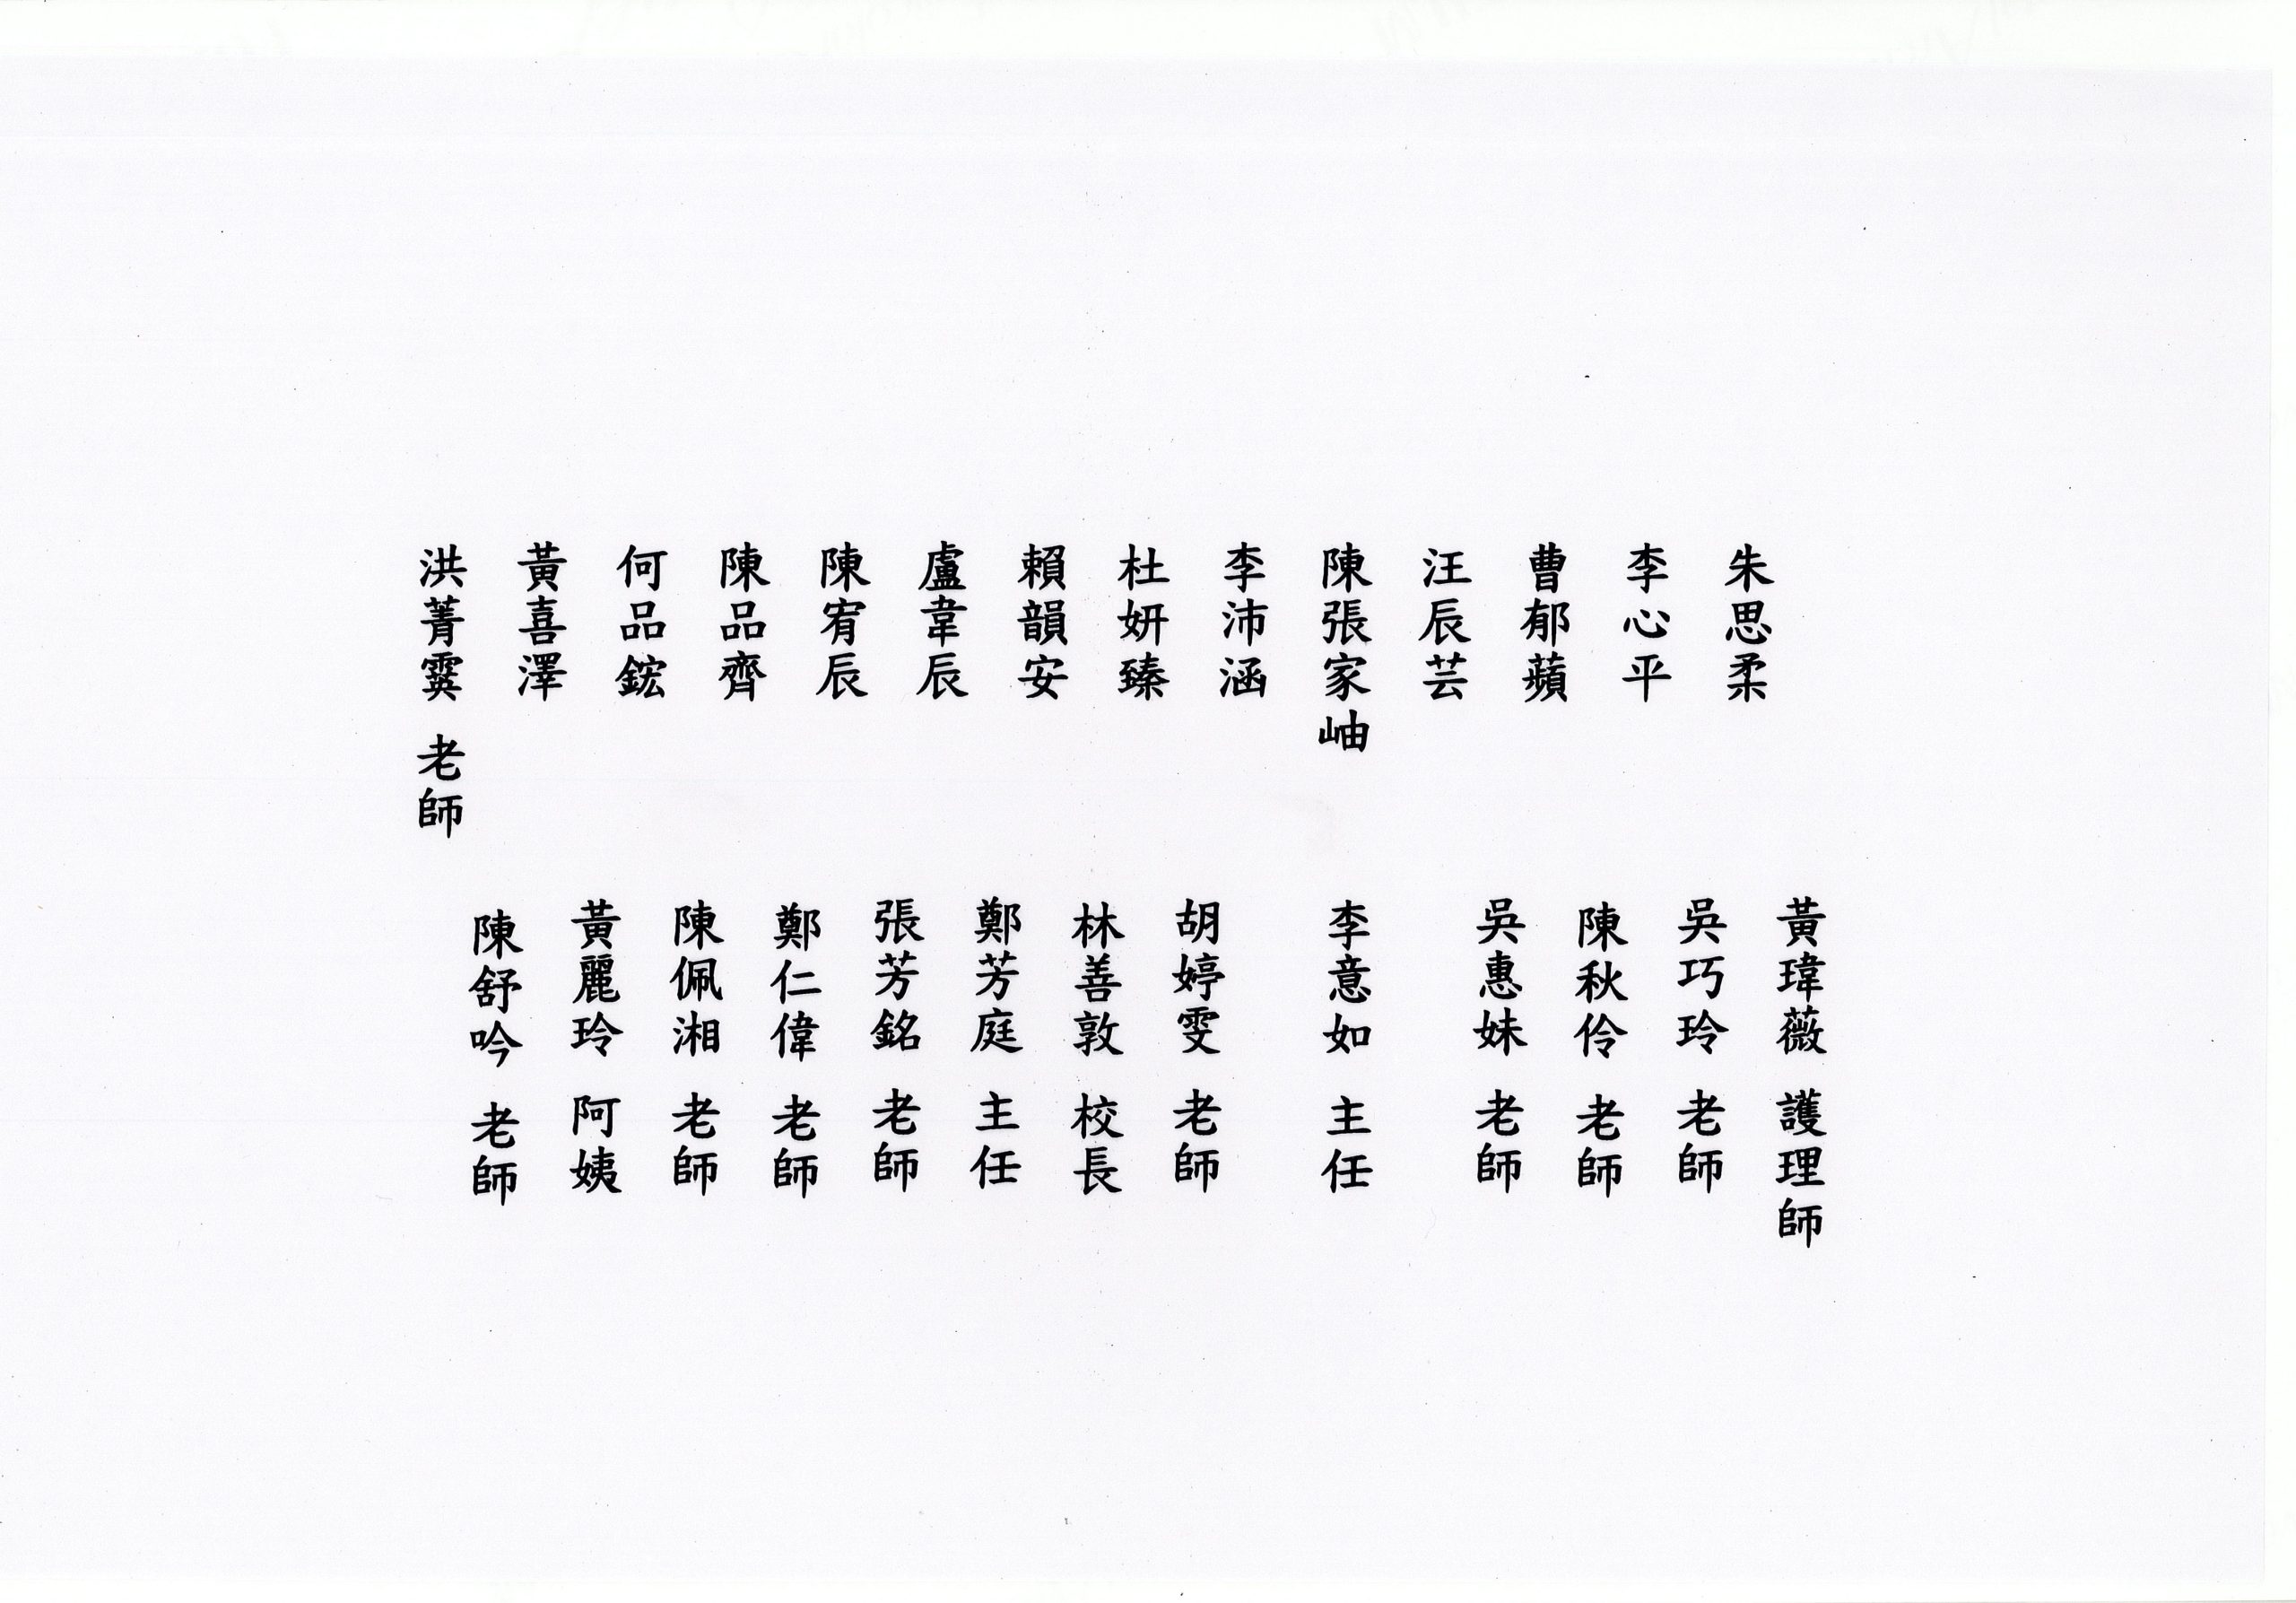 朱思柔
李心平
曹郁蘋
汪辰芸
陳張家岫
李沛涵
杜妍臻
賴韻安
盧韋辰
陳宥辰
陳品齊
何品鋐
黃喜澤
洪菁霙 老師
黃瑋薇 護理師
吳巧玲 老師
陳秋伶 老師
吳惠妹 老師
李意如 主任
胡婷雯 老師
林善敦 校長
鄭芳庭 主任
張芳銘 老師
鄭仁偉 老師
陳佩湘 老師
黃麗玲 阿姨
陳舒吟 老師